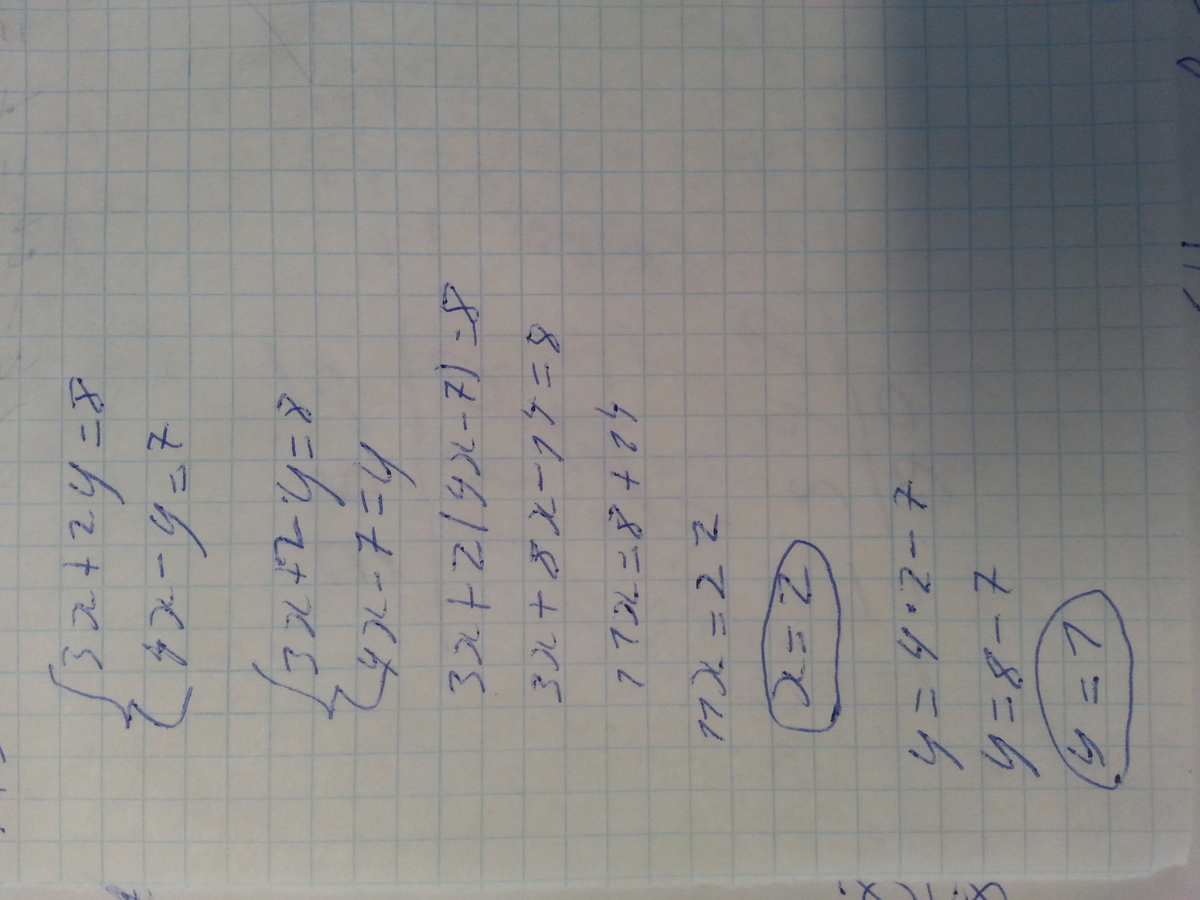 3x+2y=8
4x-y=7
3x+2y=8
4x-7=y
3x+2(4x-7)=8
3x+8x-14=8
11x=8+14
11x=22
x=2
y=4·2-7
y=8-7
y=1